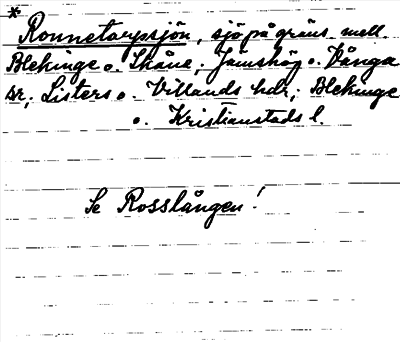 * Ronnetorpssjön, sjö på gräns mell.
Blekinge o. Skåne; Jämshög o. Vånga
sr; Listers o. Villands hdr; Blekinge
o. Kristianstads l.
Se Rosslången!